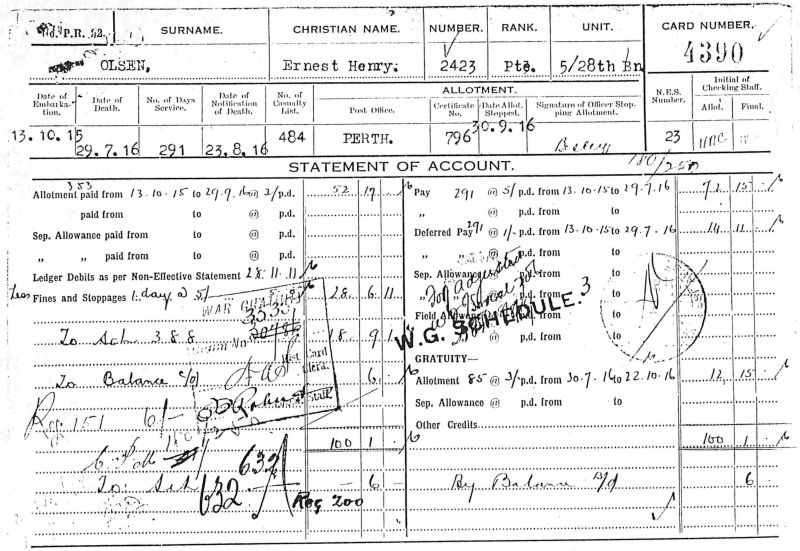 P.R. 52. SURNAME. CHRISTIAN NAME. NUMBER. RANK. UNIT. CARD NUMBER.
OLSEN, Ernest Henry. 2423 Pte. 5/28th Bn 4390
ALLOTMENT.
Date of Embarka-tion. Date of Death. No. of Days Service. Date of Notification of Death. No. of Casualty List. Post Office. Certificate No. Date Allot. Stopped. Signature of Officer Stop-ping Allotment. N.E.S. Number. Initial of Checking Staff. Allot. Final.
13.10.15 29.7.16 291 23.8.16 484 PERTH. 796 30.9.16 23
STATEMENT OF ACCOUNT.
780/250
353
Allotment paid from 13.10.15 to 29.9.16 @ 3/ p.d. 52 19 Pay 291 @ 5/ p.d. from 13.10.15 to 29.7.16 72 15
paid from to @ p.d. " @ p.d. from to
Sep. Allowance paid from to @ p.d. Deferred Pay 291 @ 1/- p.d. from 13.10.15 to 29.7.16 14 11
" " paid from to @ p.d. " " @ p.d. from to
Ledger Debits as per Non-Effective Statement 28.11.11 Sep. Allowance
Less Fines and Stoppages 1 day @ 5/ 28 6 11
WAR GRATUITY
3535
Field Allowance
W.G. SCHEDULE. 3
To Sch 388 18 9 1
Hist. Card Clerk.
GRATUITY—
To Balance c/d 6 Allotment 85 @ 3/ p.d. from 30.7.16 to 22.10.16 12 15
Staff.
Sep. Allowance @ p.d. from to
Reg 151 6/- Other Credits
100 1 100 1
632
To Sch 632 6 By Balance b/d 6
Reg 200